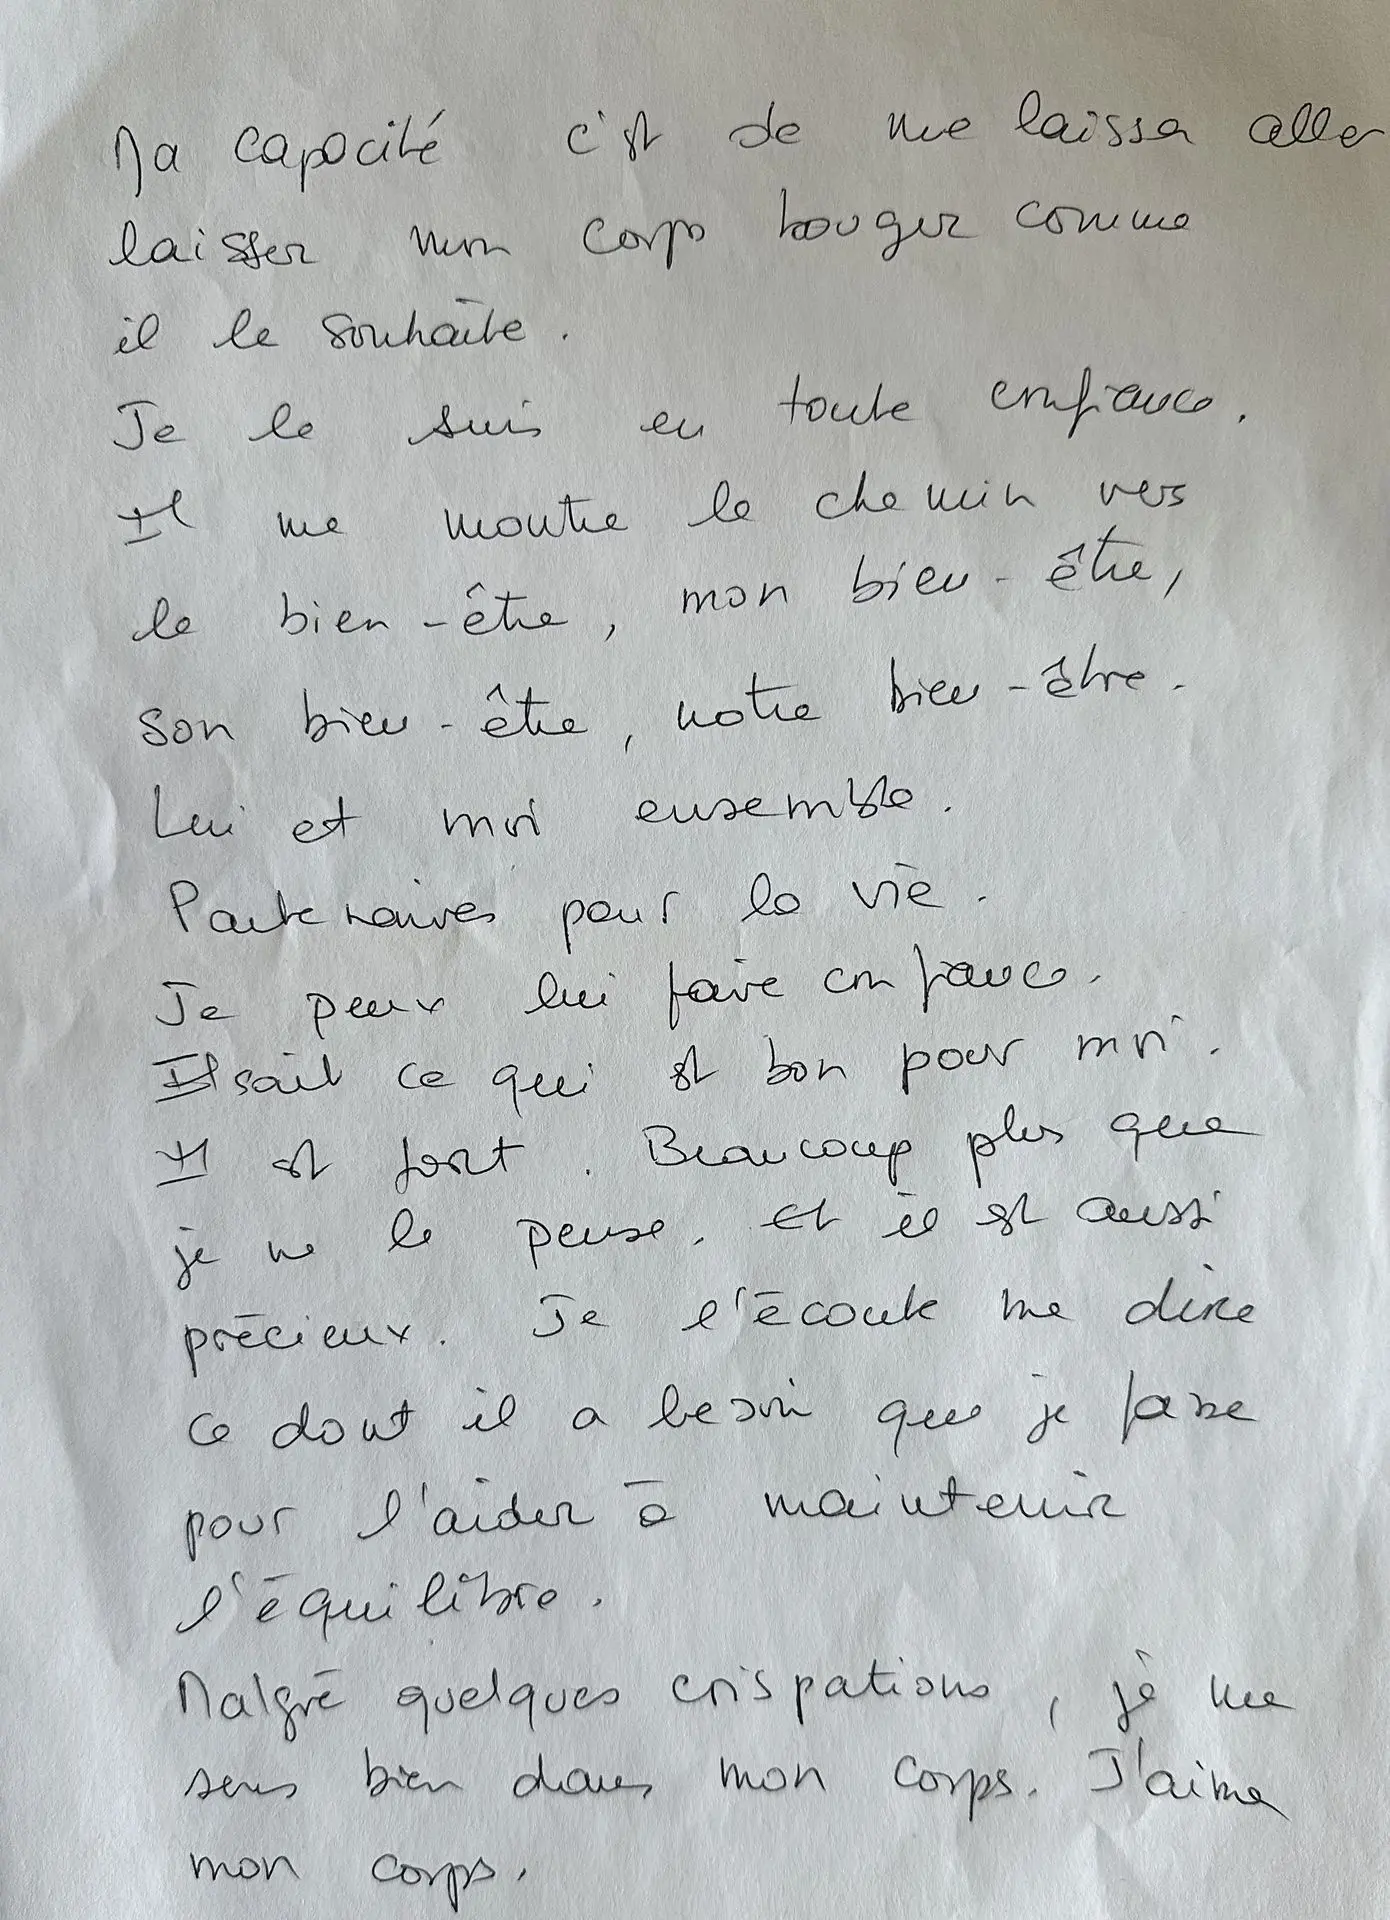 Ma capacité c'est de me laisser aller
laisser mon corps bouger comme
il le souhaite.
Je le suis en toute confiance.
Il me montre le chemin vers
le bien-être, mon bien-être,
son bien-être, notre bien-être.
Lui et moi ensemble.
Partenaires pour la vie.
Je peux lui faire confiance.
Il sait ce qui est bon pour moi.
Il est fort. Beaucoup plus que
je ne le pense. Et il est aussi
précieux. Je l'écoute me dire
ce dont il a besoin que je fasse
pour l'aider à maintenir
l'équilibre.
Malgré quelques crispations, je me
sens bien dans mon corps. J'aime
mon corps.